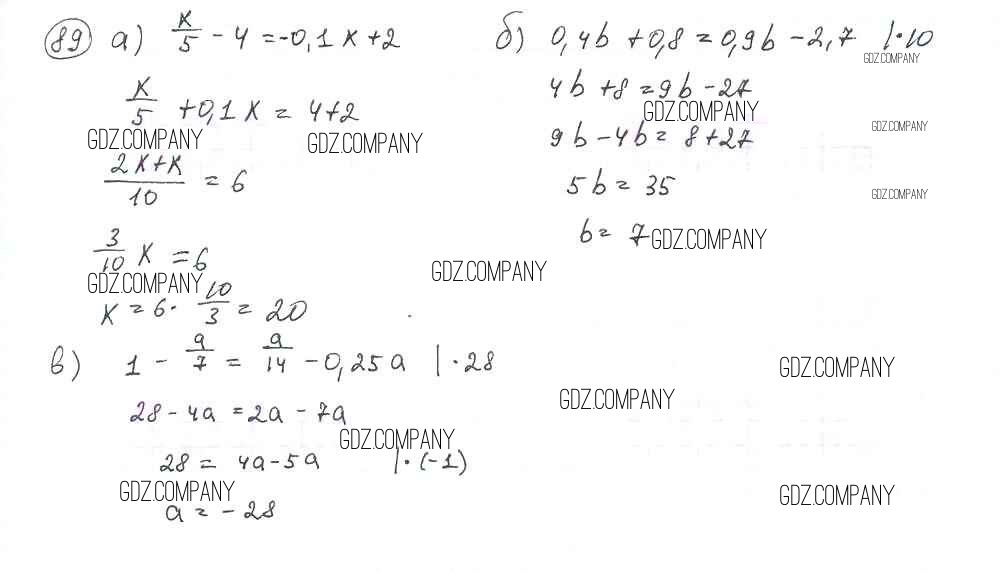 89 а) к/5 - 4 = -0,1к + 2
к/5 + 0,1к = 4+2
GDZ.COMPANY GDZ.COMPANY
(2к+к)/10 = 6
3/10 к = 6
GDZ.COMPANY
к = 6 · 10/3 = 20
б) 0,4b + 0,8 = 0,9b - 2,7 |·10
GDZ.COMPANY
4b + 8 = 9b - 27
GDZ.COMPANY
GDZ.COMPANY
9b - 4b = 8 + 27
5b = 35
GDZ.COMPANY
b = 7
GDZ.COMPANY
GDZ.COMPANY
в) 1 - a/7 = a/14 - 0,25a |·28
GDZ.COMPANY
28 - 4a = 2a - 7a
GDZ.COMPANY
GDZ.COMPANY
28 = 4a - 5a |·(-1)
GDZ.COMPANY
GDZ.COMPANY
a = -28